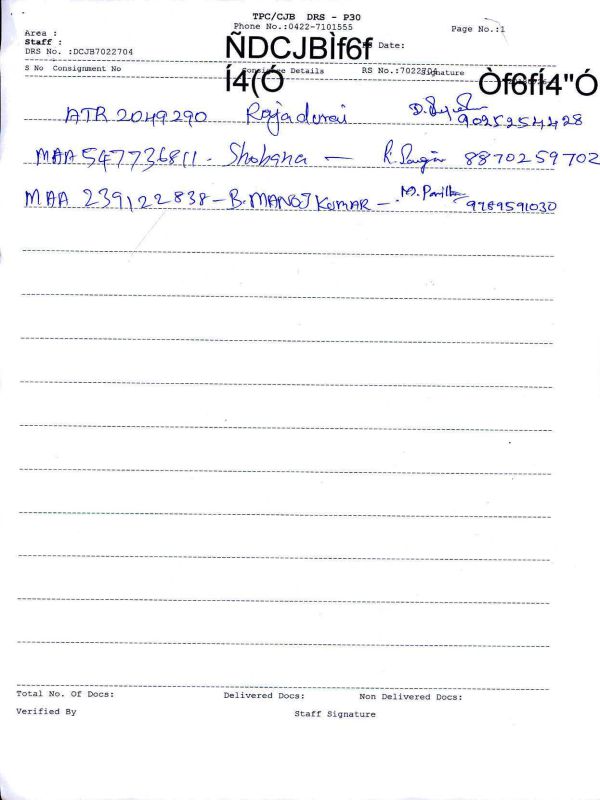 TPC/CJB DRS - P30
Phone No.:0422-7101555
Page No.:1
Area :
Staff :
DRS No. :DCJB7022704
ÑDCJBÌf6f
Date:
Í4(Ó
Òf6fÍ4"Ó
S No Consignment No Details RS No.:7022704 Signature
ATR 2049290 Rajadurai 9025254428
MAA 547736811 - Shobana - 8870259702
MAA 239122838 - B. MANOJ KUMAR - 9789591030
Total No. Of Docs: Delivered Docs: Non Delivered Docs:
Verified By Staff Signature